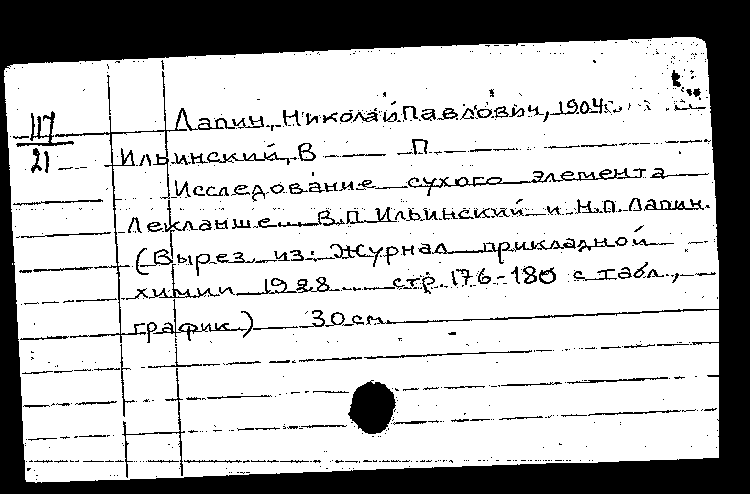 117
21
Лапин, Николай Павлович, 1904
Ильинский, В П
Исследование сухого элемента
Лекланше... В.П. Ильинский и Н.П. Лапин.
(Вырез. из: Журнал прикладной
химии 1928 ... стр. 176-180 с табл.,
график.) 30 см.